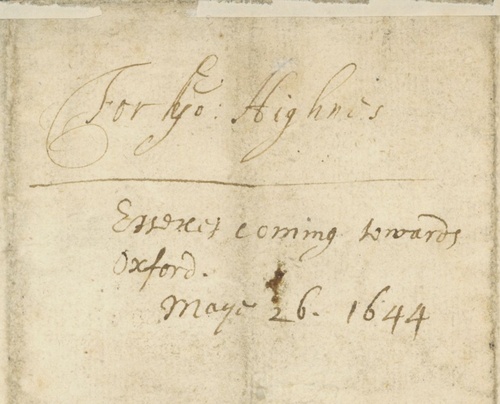 For yo: Highnes
Essexes coming towards
Oxford.
Maye 26. 1644